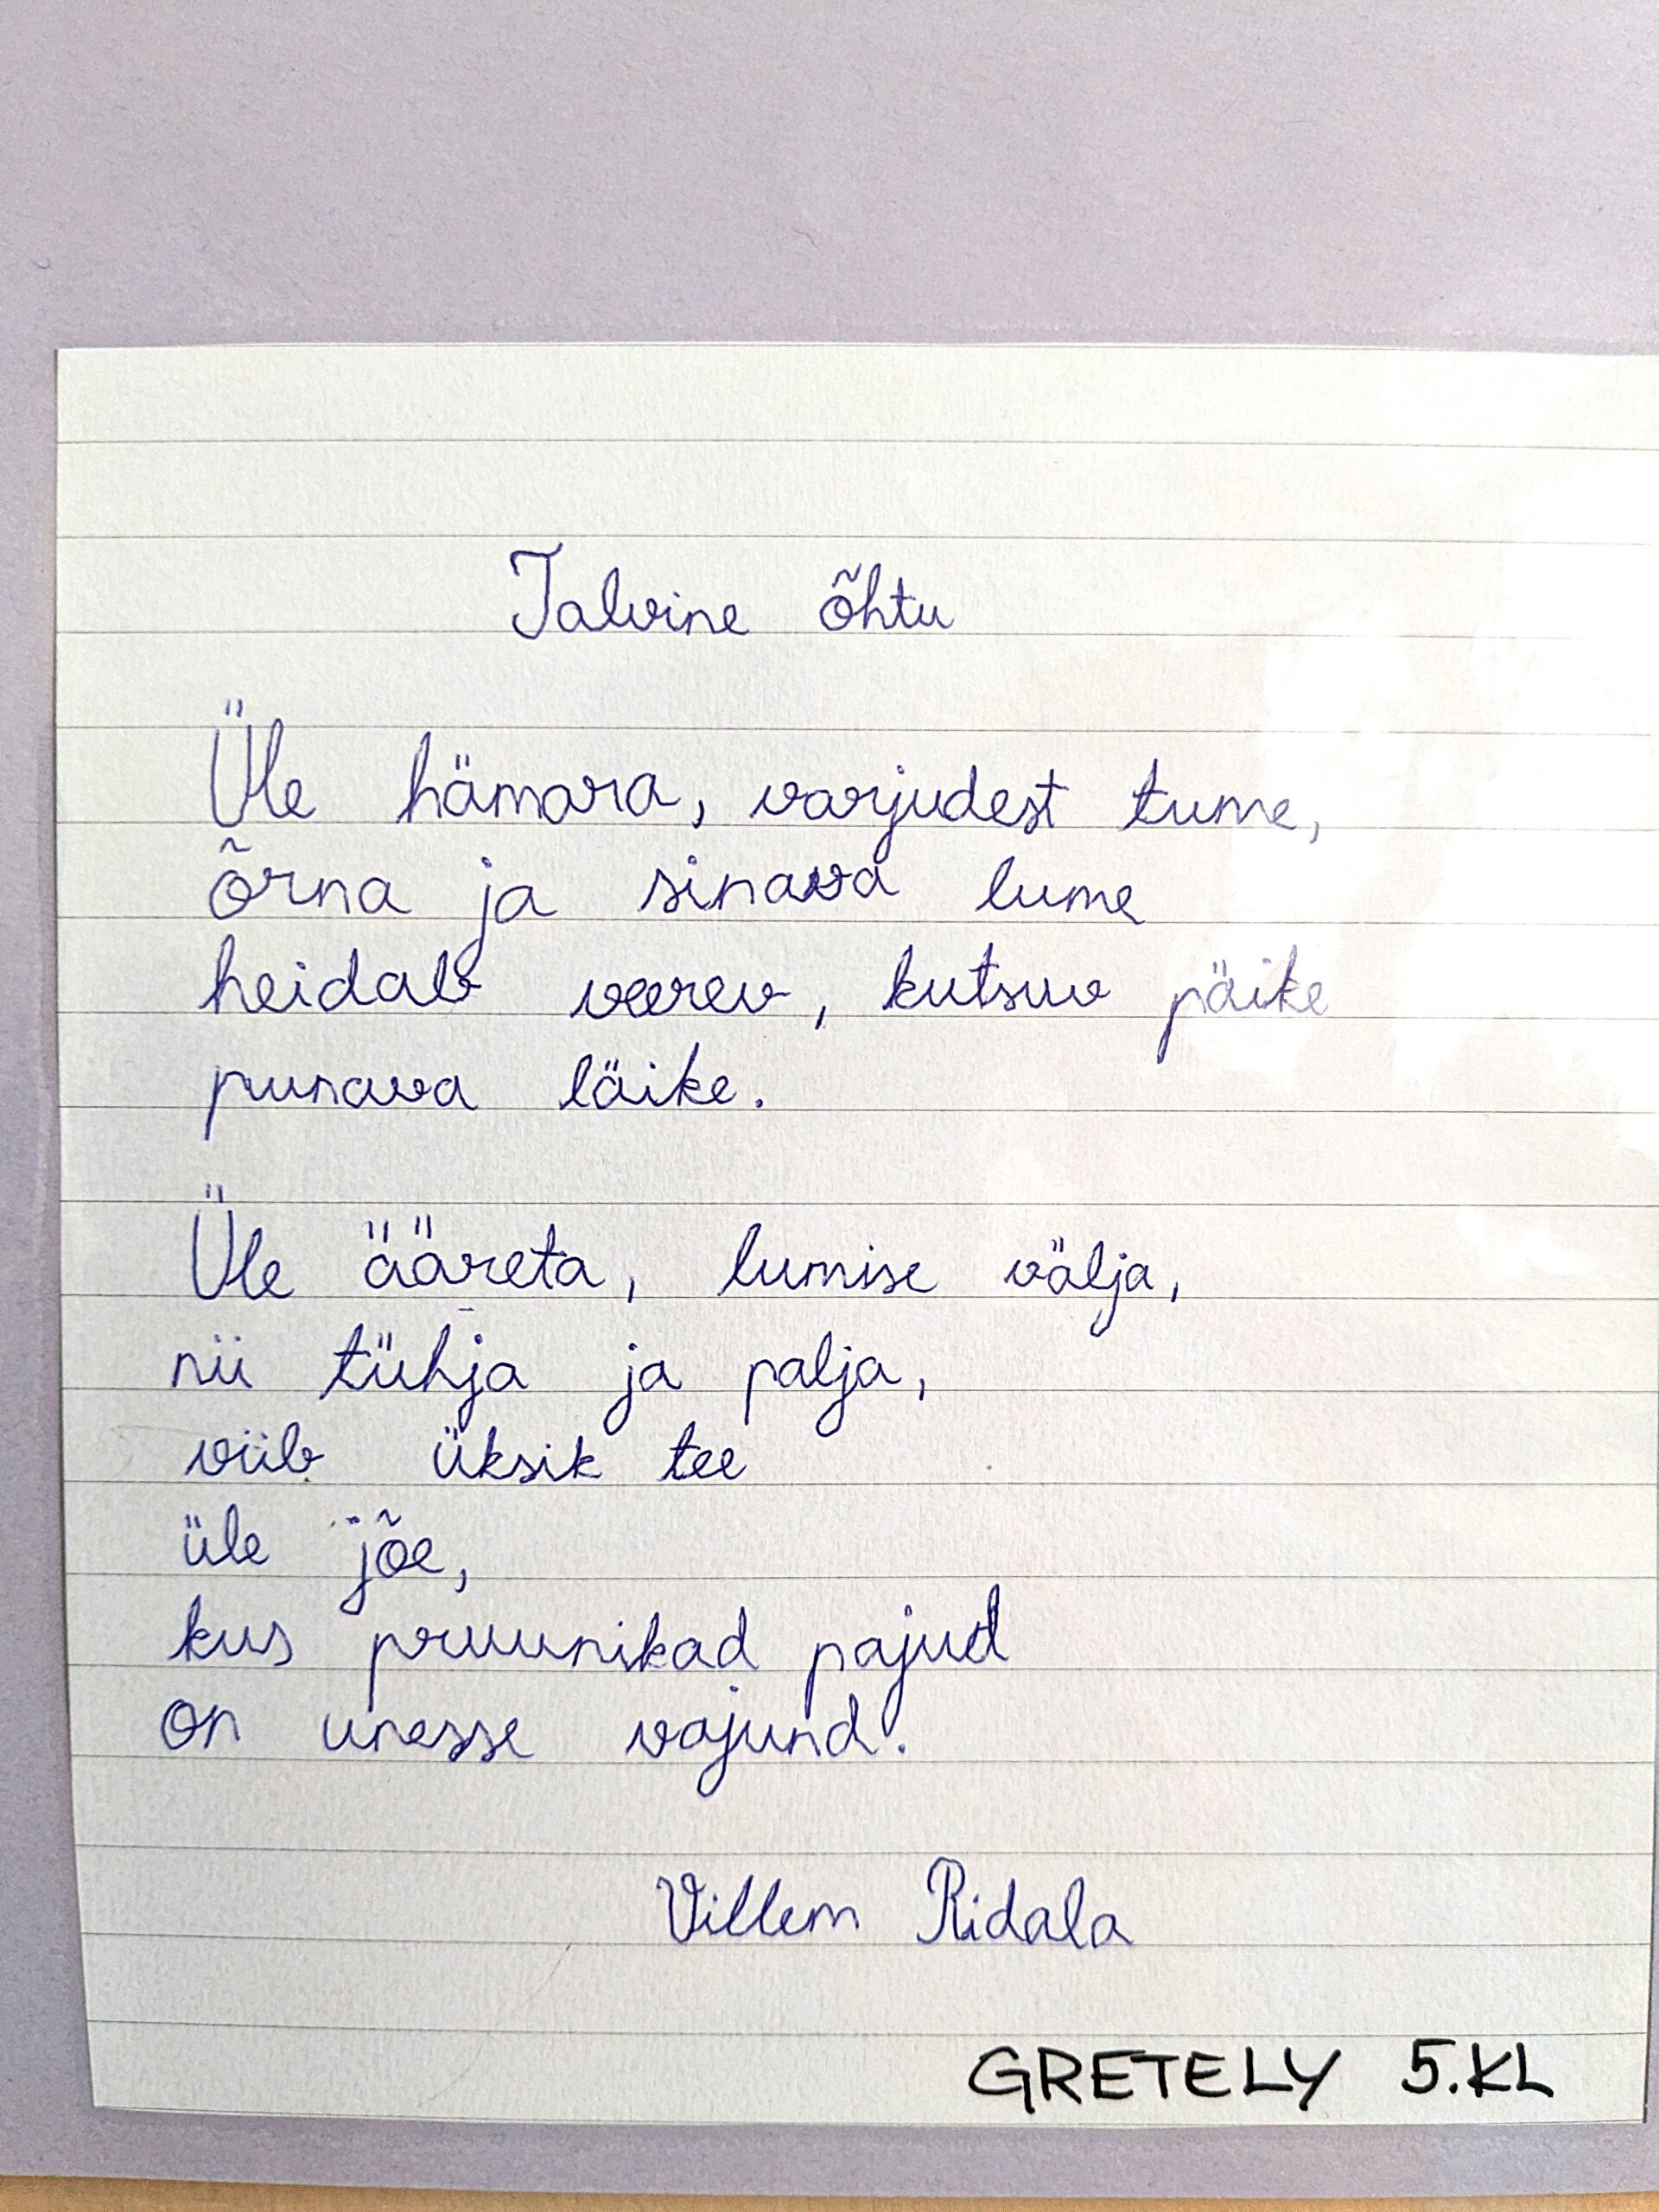 Talvine õhtu
Üle hämara, varjudest tume,
õrna ja sinava lume
heidab veerev, kutsuv päike
punava läike.
Üle ääreta, lumise välja,
nii tühja ja palja,
viib üksik tee
üle jõe,
kus pruunikad pajud
on unesse vajund.
Villem Ridala
GRETELY 5.KL